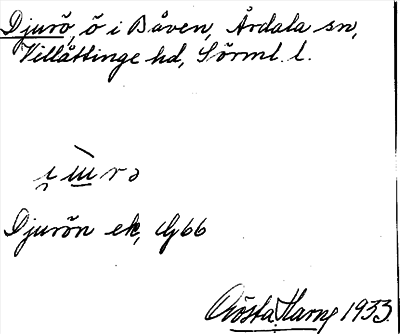 Djurö, ö i Båven, Årdala sn,
Villåttinge hd, Sörml. l.
Djurön ek, Gj66
Gösta Harne 1933.